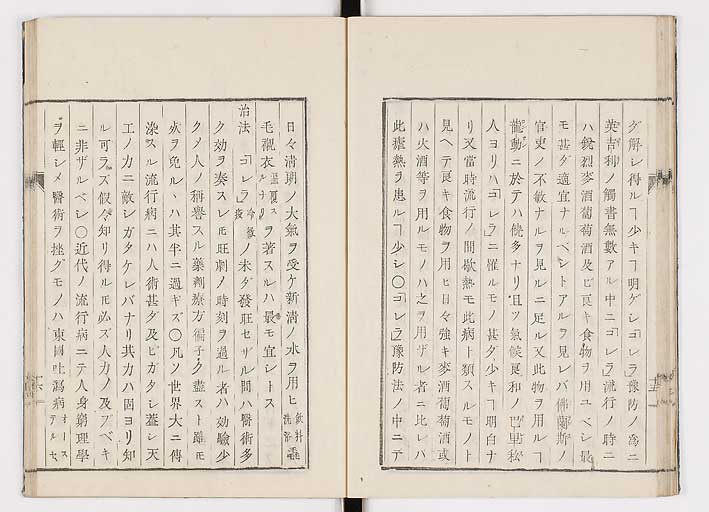 グ解シ得ルヿ少キヿ明ゲシ「コレラ」豫防ノ爲ニ
英吉利ノ觸書無數アル中ニ「コレラ」流行ノ時ニ
ハ銳烈麥酒葡萄酒及ビ良キ食物ヲ用ユベシ最
モ甚ダ適宜ナルベシトアルヲ見レバ佛蘭斯ノ
官吏ノ不敏ナルヲ見ルニ足ル又此物ヲ用ルヿ
龍動ニ於テハ饒多ナリ且ツ氣候良和ノ巴里松
人ヨリハ「コレラ」ニ罹ルモノ甚ダ少キヿ明白ナ
リ又當時流行ノ間歇熱モ此病ト類スルモノト
見ヘテ良キ食物ヲ用ヒ日々強キ麥酒葡萄酒或
ハ火酒等ヲ用ルモノハ之ヲ用ザル者ニ比レバ
此瘧熱ヲ患ルヿ少シ〇「コレラ」豫防法ノ中ニテ
日々淸朗ノ大氣ヲ受ケ新淸ノ水ヲ用ヒ飮料洗浴
毛襯衣ヲ著スルハ最モ宜シトス
治法 「コレラ」ノ未ダ發旺セザル間ハ醫術多
ク効ヲ奏スレ𪜈旺劇ノ時刻ヲ過ル者ハ効驗少
ク人ノ稱譽スル藥劑療方偏ク盡スト雖𪜈
死ヲ免ルヽハ其半ニ過ギズ〇凡ソ世界大ニ傳
染スル流行病ニハ人術甚ダ及ビガタシ蓋シ天
工ノ力ニ敵シガタケレバナリ其力ハ固ヨリ知
ル可ラズ假令知リ得ル𪜈必ズ人力ノ及ブベキ
ニ非ザルベシ〇近代ノ流行病ニテ人身窮理學
ヲ輕シメ醫術ヲ挫グモノハ東國吐瀉病オーステルセ